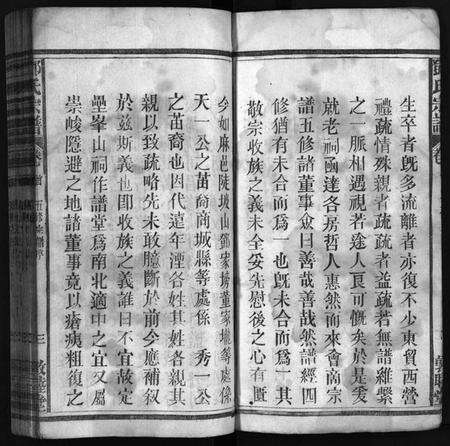 生卒者既多流離者亦復不少東貿西營
禮疏情殊親者疏疏者益疏若無譜維繫
之一脈相遇視若途人良可慨矣於是爰
就老祠國達各房哲人惠然而來會商宗
譜五修諸董事僉曰善哉善哉然譜經四
修猶有未合而為一也既未合而為一其
敬宗收族之義未全妥先慰後之心有慚
今如麻邑陡坡山鄧家塆董家塆等處係
天一公之苗裔商城縣等處係 秀一公
之苗裔也因代遠年湮各姓其姓各親其
親以致疏略先未敢臆斷於前今應補叙
於茲斯義也即收族之義誰曰不宜故定
壘峯山祠作譜堂為南北適中之宜又屬
崇峻隱避之地諸董事竟以瘡痍粗復之
三